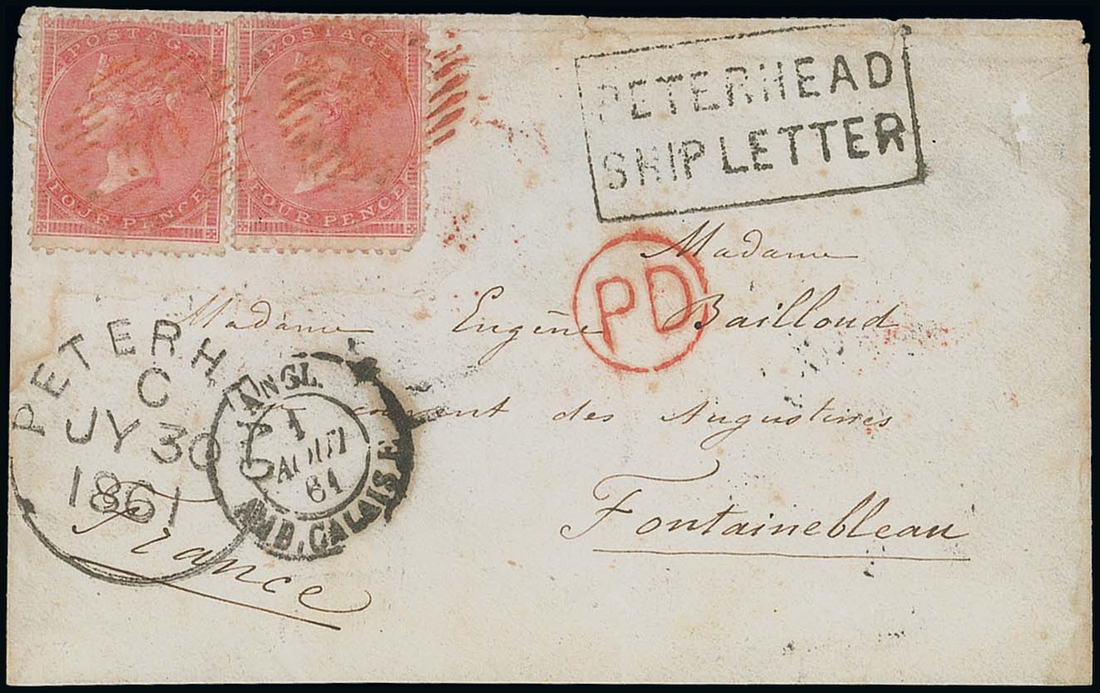 POSTAGE POSTAGE
FOUR PENCE FOUR PENCE
PETERHEAD
SHIP LETTER
PD
Madame
Madame Eugène Bailloud
couvent des Augustines
Fontainebleau
France
PETERH
C
JY 30
1861
ANGL.
1
AOUT
61
AMB. CALAIS. F